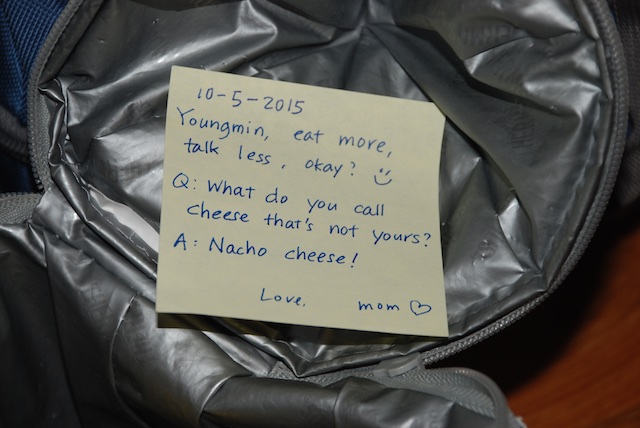 10-5-2015
Youngmin, eat more,
talk less, okay? :)
Q: What do you call
cheese that's not yours?
A: Nacho cheese!
Love, mom ♡